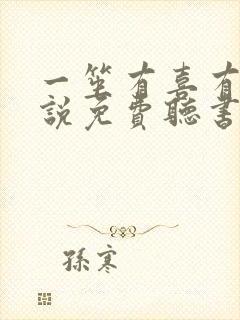 一笙有喜有
說免費聽書
孫寒